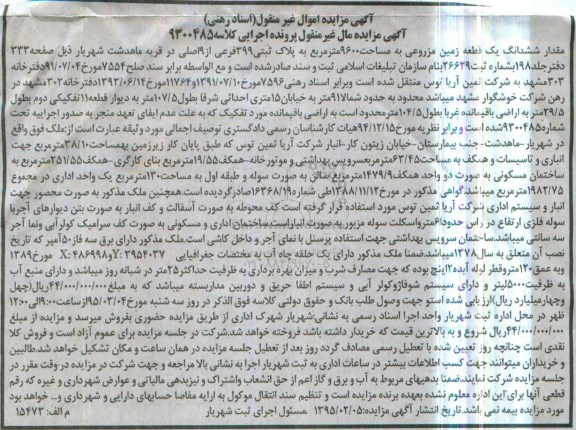 آگهی مزایده اموال غیر منقول(اسناد رهنی)
آگهی مزایده مال غیرمنقول پرونده اجرایی کلاسه ۹۳۰۰۴۸۵
مقدار ششدانگ یک قطعه زمین مزروعی به مساحت۹۶۰۰مترمربع به پلاک ثبتی۳۹۹فرعی از۹اصلی در قریه ماهدشت شهریار ذیل صفحه۳۳۳
دفترجلد۱۹۸بشماره ثبت۲۶۶۳۹بنام سازمان تبلیغات اسلامی ثبت و سند صادرشده است و مع الواسطه برابر سند صلح۷۵۵۴مورخ۹۱/۰۷/۰۴دفترخانه
۳۰۳مشهد به شرکت ثمین آریا توس منتقل شده است وبرابر اسناد رهنی۷۵۹۶مورخ۱۳۹۱/۰۷/۱۰و۱۱۷۶۴مورخ۱۳۹۳/۰۶/۱۴دفترخانه۳۰۳مشهد در
رهن شرکت خوشگوار مشهد میباشد محدود به حدود شمالا۹۱متر به خیابان۱۵متری احداثی شرقا بطول۱۰۷/۵متر به دیوار قطعه۱۱تفکیکی دوم بطول
۲۹/۵متر به اراضی باقیمانده غربا بطول۱۰۴/۵متر محدود است به اراضی باقیمانده مورد تفکیک که به علت عدم ایفای تعهد منجر به صدور اجراییه تحت
شماره۹۳۰۰۴۸۵شده است و برابر نظریه مورخ۹۴/۱۲/۱۵هیات کارشناسان رسمی دادگستری توصیف اجمالی مورد وثیقه عبارت است از:ملک فوق واقع
در شهریار-ماهدشت-جنب بیمارستان-خیابان زیتون کار-انبار شرکت آریا ثمین توس که طبق پایان کار زیرزمین بهمساحت۳۸/۱۰مترمربع جهت
انباری و تاسیسات و همکف به مساحت۶۳/۴۵مترمربعسرویس بهداشتی و موتورخانه-همکف۱۹/۵۵مترمربع بنای کارگری -همکف۲۵۱/۵۵مترمربع به
ساختمان مسکونی به صورت دو واحد همکف۱۴۷۹/۹مترمربع سالن به صورت سوله و طبقه اول به مساحت۱۳۰مترمربع یک واحد اداری در مجموع
۱۹۸۲/۷۵مترمربع میباشدگواهی مذکور در مورخ۱۳۸۸/۱۱/۱۲طی شماره۱۶۳۶۸/۱۹صادرگردیده است.همچنین ملک مذکور به صورت محصور جهت
انبار و سیستم اداری شرکت آریا ثمین توس مورد استفاده قرار گرفته است کف محوطه به صورت آسفالت و کف انبار به صورت بتن دیوارهای آجربا
سوله فلزی ارتفاع در راس حدودا۶متر واسکلت سوله مزبور به صورت انبار است.ساختمان اداری و مسکونی به صورت کف سرامیک کولرآبی ونما آجر
سه سانتی میباشد.ساختمان سرویس بهداشتی جهت استفاده پرسنل با نمای آجر و داخل کاشی است.ملک مذکور دارای برق سه فاز۵۰آمپر که تاریخ
نصب آن متعلق به سال۱۳۷۸میباشد.ضمنا ملک مذکور دارای یک حلقه چاه آب به مختصات جغرافیایی X:۴۸۶۹۹۸وY:۳۹۵۴۰۳۷ مورخ۱۳۸۹
وبه عمق۱۲۰متروقطر لوله آبده۲اینچ بوده که جهت مصارف شرب و میزان بهره برداری به ظرفیت حداکثر۲۵متر در شبانه روز میباشد و دارای منبع آب
به ظرفیت۵۰۰۰لیتر و دارای سیستم شوفاژوکولر آبی و سیستم اطفا حریق و دوربین مداربسته میباشد که به مبلغ۴۴/۰۰۰/۰۰۰/۰۰۰ریال(چهل
وچهارمیلیارد ریال)ارزیابی شده استو جهت وصول طلب بانک و حقوق دولتی کلاسه فوق الذکر در روز سه شنبه مورخ۹۵/۰۳/۰۴ازساعت۹:۰۰الی۱۲:۰۰
ظهر در محل اداره ثبت شهریار واحد اجرا اسناد رسمی به نشانی:شهریار شهرک اداری از طریق مزایده حضوری بفروش میرسد و مزایده از مبلغ
۴۴/۰۰۰/۰۰۰/۰۰۰ریال شروع و به بالاترین قیمت که خریدار داشته باشد فروخته خواهد شد.شرکت در جلسه مزایده برای عموم آزاد است و فروش کلا
نقدی است چنانچه روز تعیین شده با تعطیل رسمی مصادف گردد روز بعد از تعطیل جلسه مزایده در همان ساعت و مکان تشکیل خواهد شد.طالبین
و خریداران میتوانند جهت کسب اطلاعات بیشتر در ساعات اداری به ثبت شهریار اجرا به نشانی بالا مراجعه و جهت شرکت در مزایده در وقت مقرر در
جلسه مزایده شرکت نمایند.ضمنا بدهیهای مربوط به آب و برق و گاز اعم از حق انشعاب واشتراک و نیزبدهی مالیاتی و عوارض شهرداری و غیره که رقم
قطعی آنها برای این اداره معلوم نشده بعهده برنده مزایده است و تنظیم سند انتقال موکول به ارایه مفاصا حسابهای دارایی و شهرداری و... خواهد بود
مورد مزایده بیمه نمی باشد.تاریخ انتشار آگهی مزایده:۱۳۹۵/۰۲/۰۵ مسئول اجرای ثبت شهریار م الف: ۱۵۴۷۳